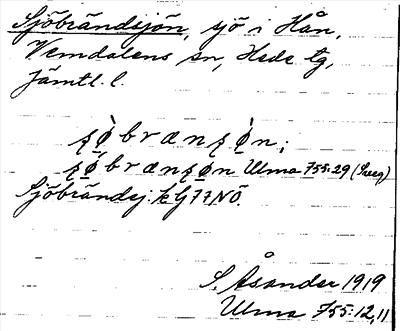 Sjöbrändsjön, sjö i Hån,
Vemdalens sn, Hede tg,
Jämtl. l.
ʂø̀brænʂø̀n;
ʂø̀brænʂøn Ulma 755:29 (Sveg)
Sjöbrändsj. kG77NÖ.
S. Åsander 1919
Ulma 755:12,11